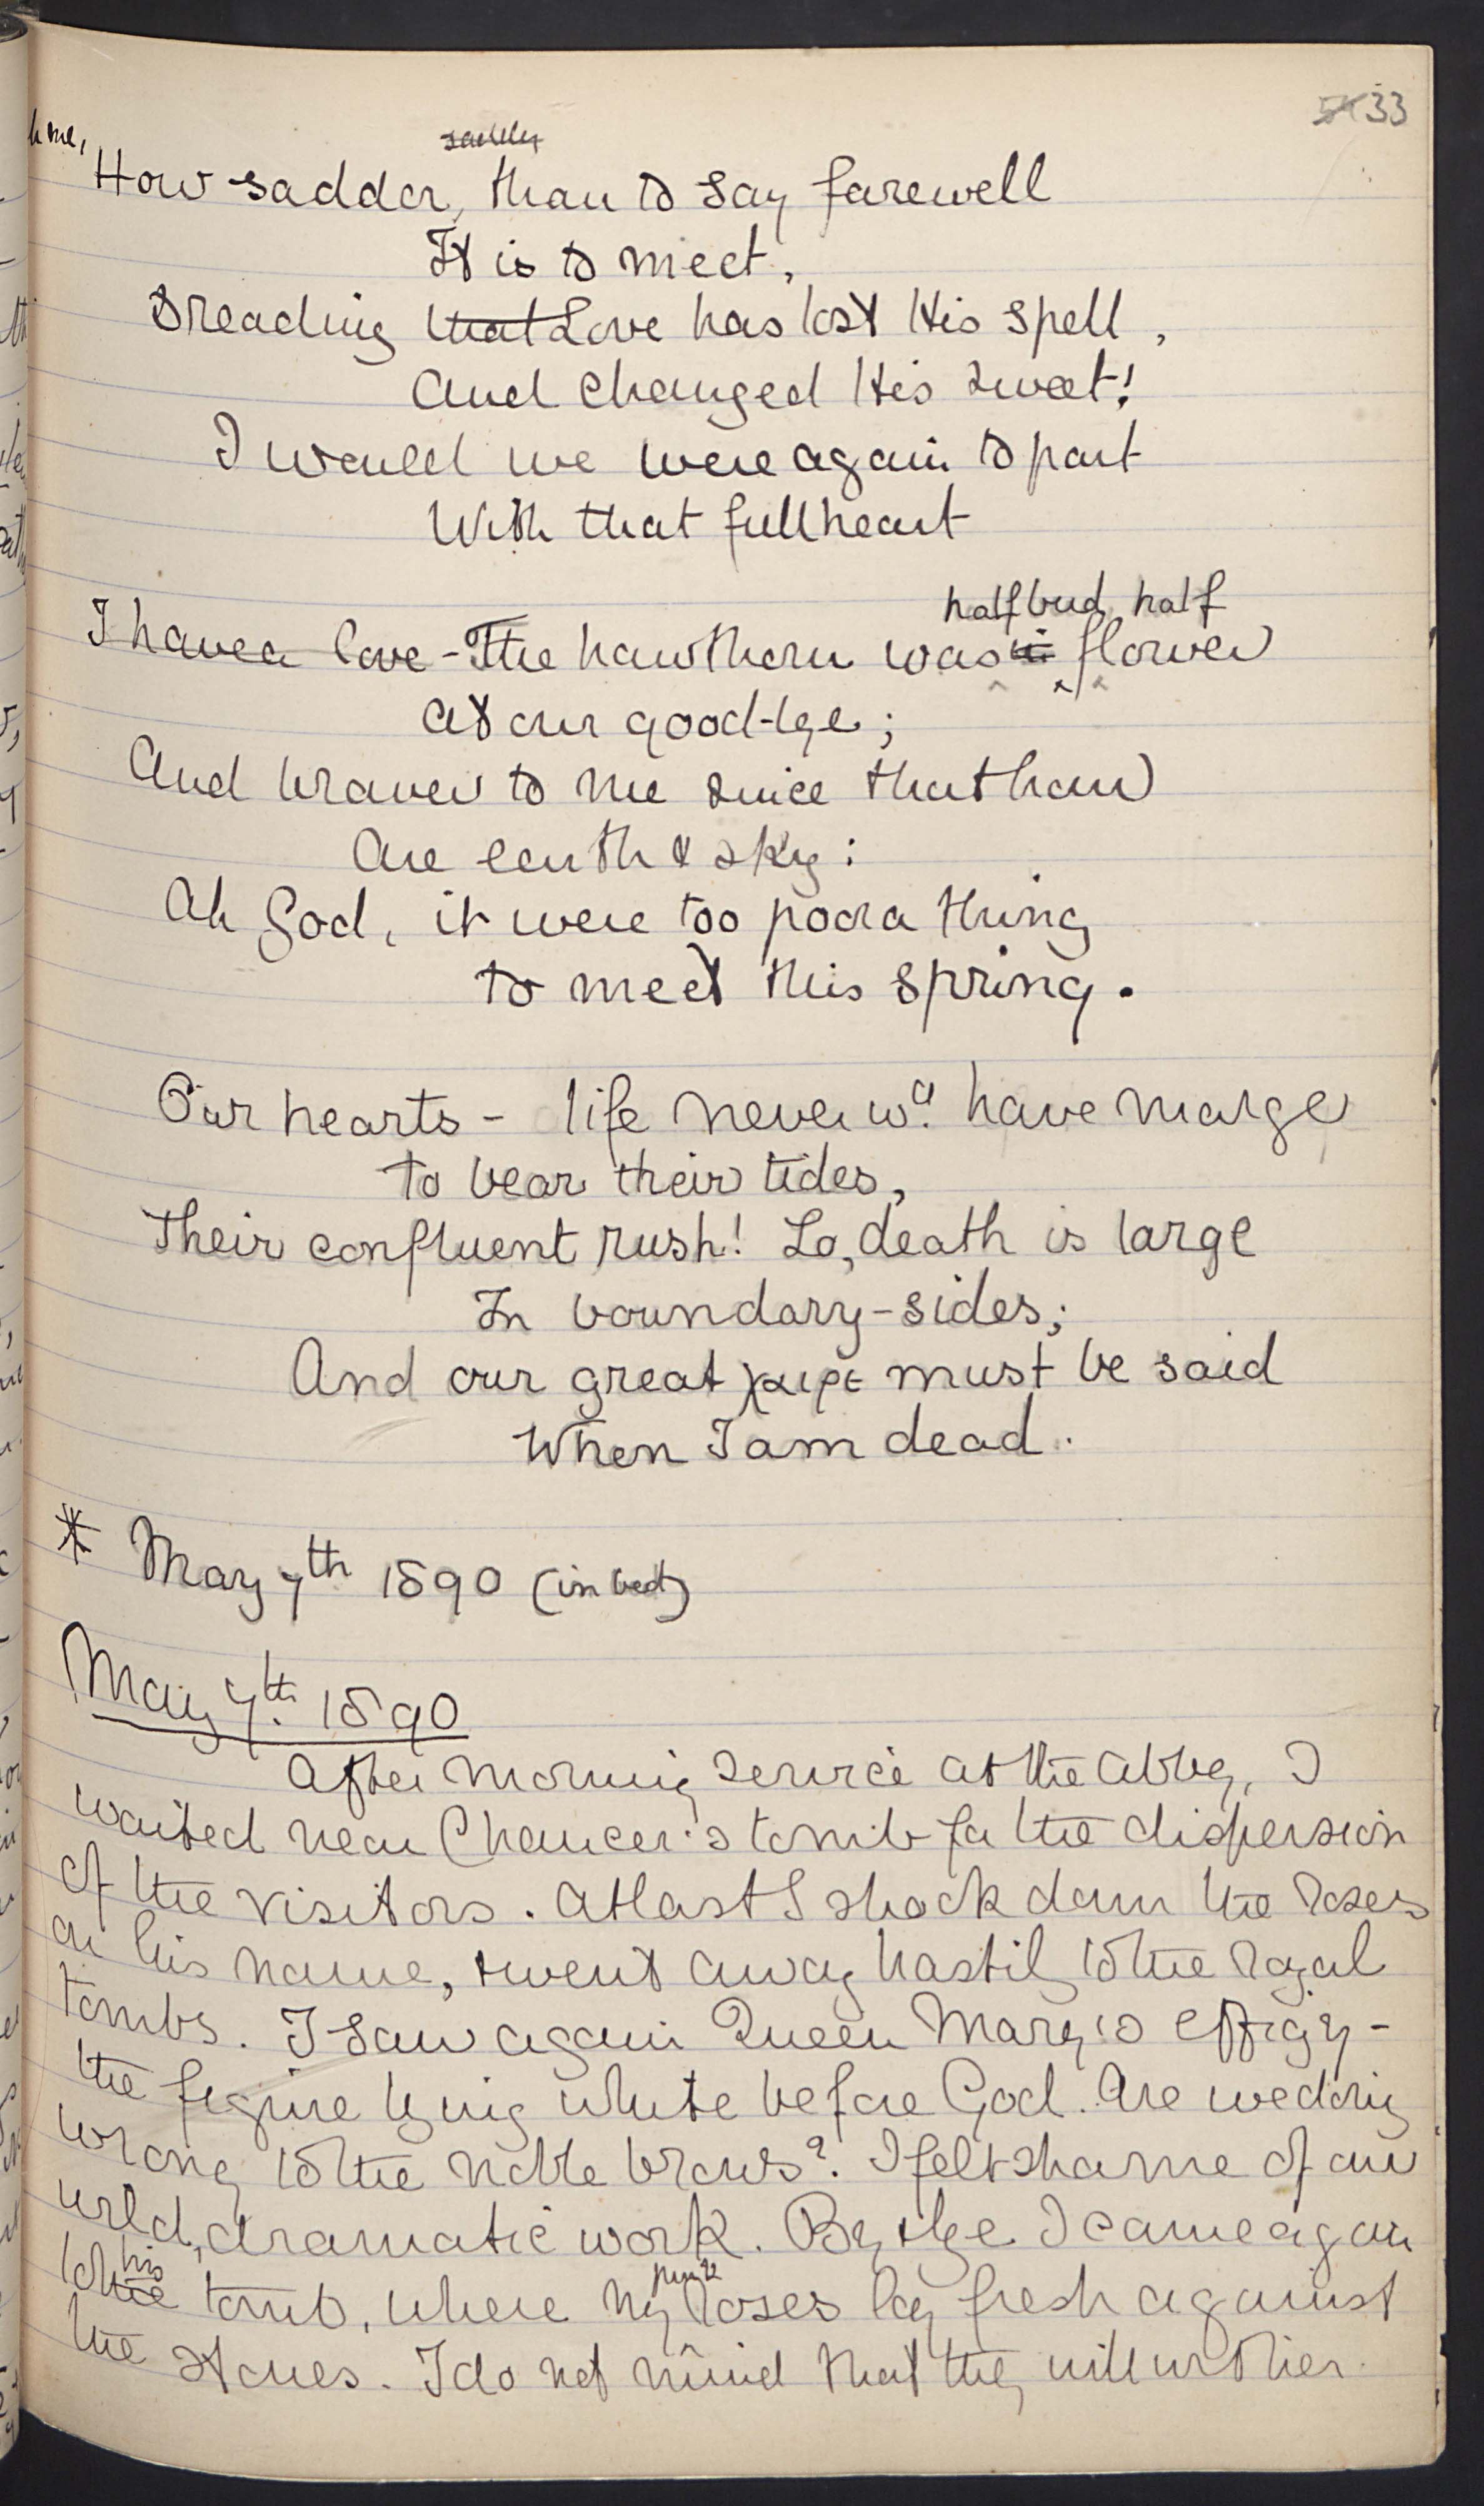 33
sadly
How sadder, than to say farewell
It is to meet,
Dreading that Love has lost His spell,
And changed His sweet!
I would we were again to part
With that full heart
half bud, half
I have a love - The hawthorn was in flower
At our good-bye;
And braver to me since that hour
Are earth & sky:
Ah God, it were too poor a thing
to meet this spring.
Our hearts - life never wd. have marge
to bear their tides,
Their confluent rush! Lo, death is large
In boundary-sides;
And our great χαῖρε must be said
When I am dead.
* May 7th 1890 (in bed)
May 7th. 1890
After morning service at the Abbey, I
waited near Chaucer's tomb for the dispersion
of the visitors. At last I shook down the roses
on his name, & went away hastily to the royal
tombs. I saw again Queen Mary's effigy -
the figure lying white before God. Are we doing
wrong to the noble brows? I felt shame of our
wild, dramatic work. By & bye I came again
his
to the tomb, where my roses lay fresh against
the stones. I do not mind that they will wither.